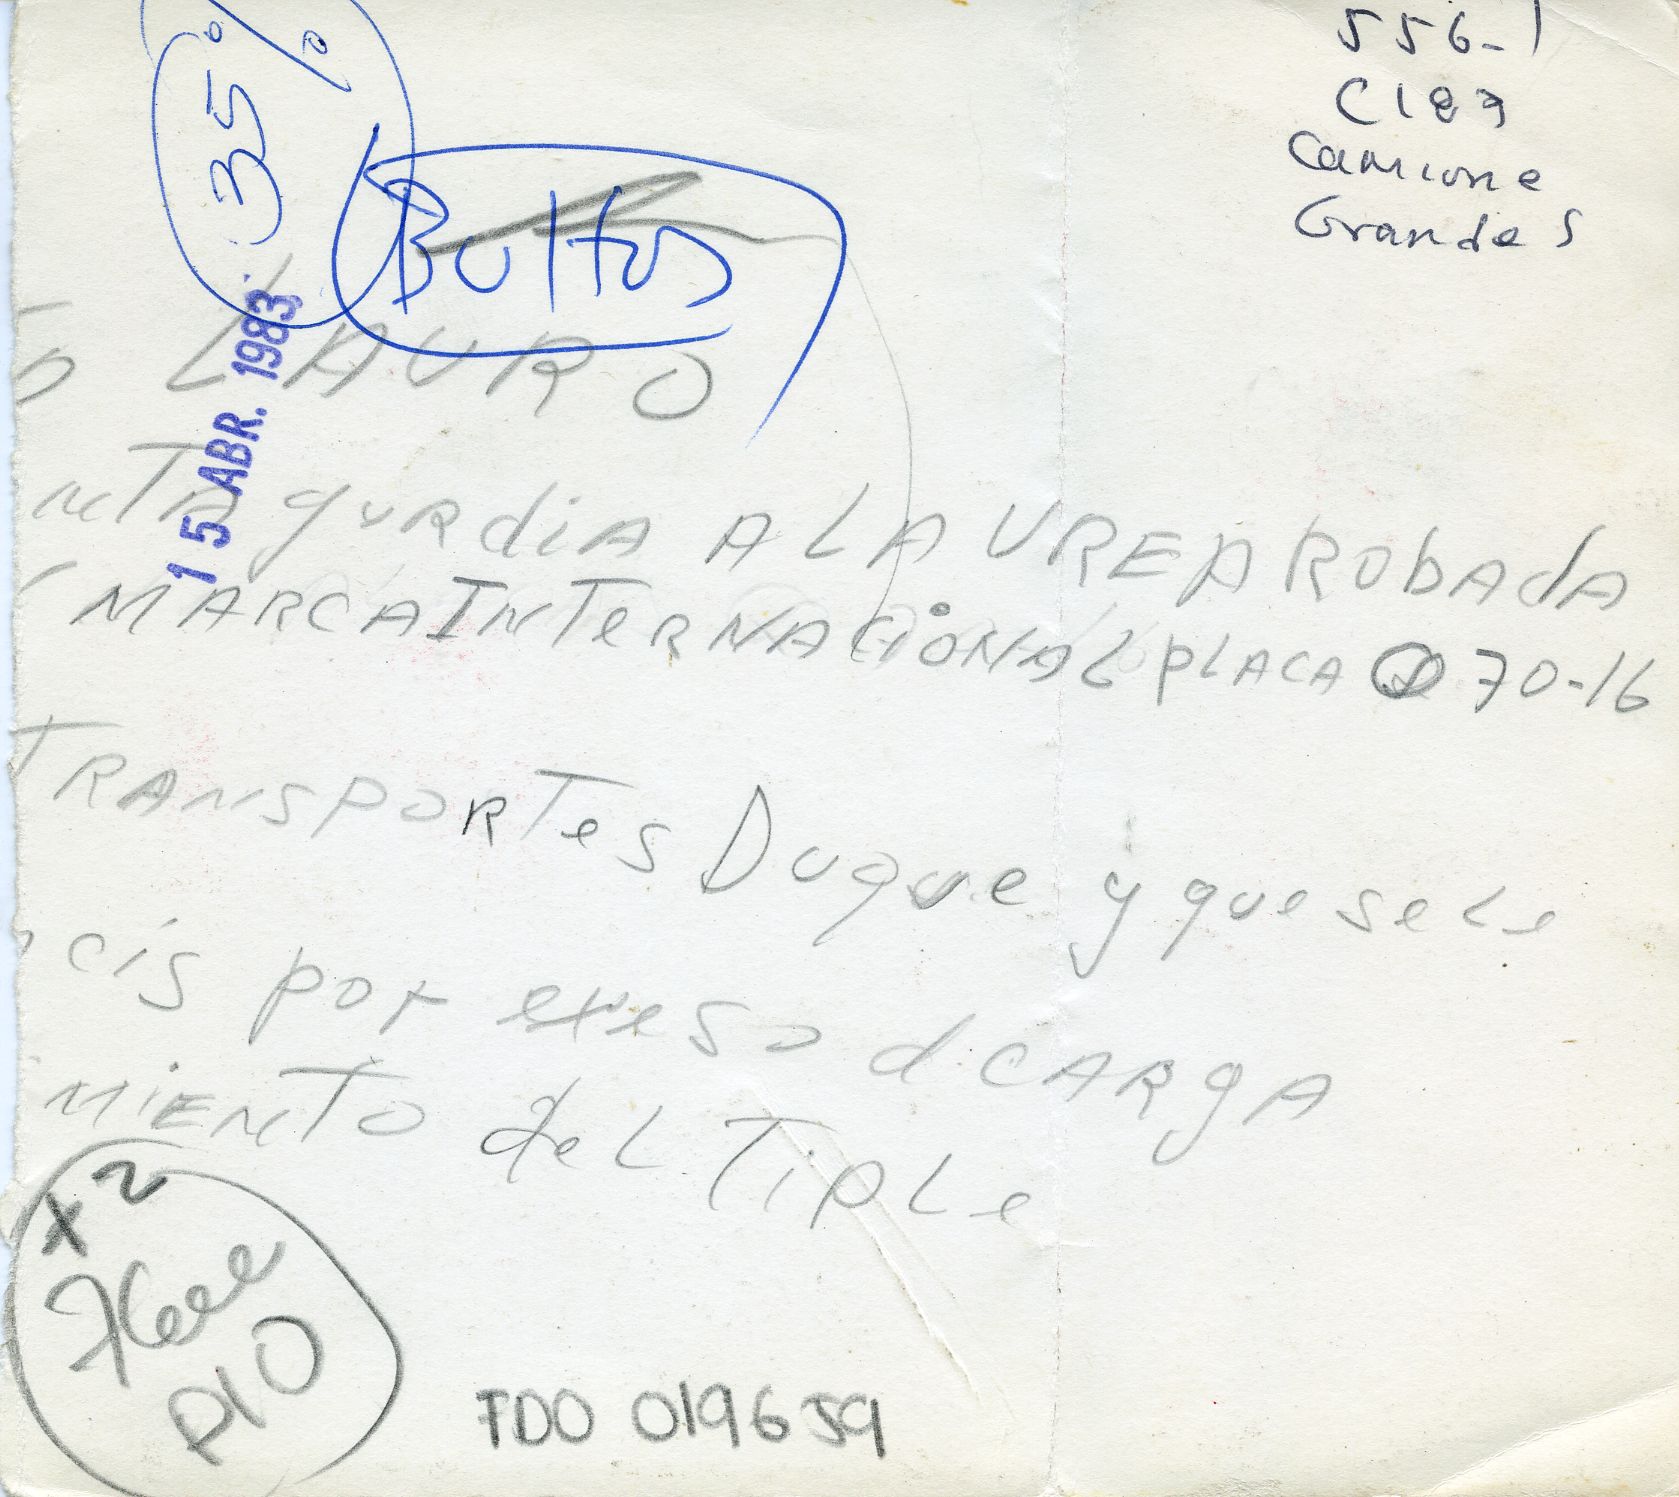 556-1
C189
Camione
Grandes
35%
Bultos
15 ABR. 1983
LAURO
gurdia A LA UREP ROBADA
MARCA INTERNACIONAL PLACA 70-16
TRANSPORTES Duque y que se Le
cis por exeso d CARGA
MIENTO deL TipLe
x2
P10
FDO 019659